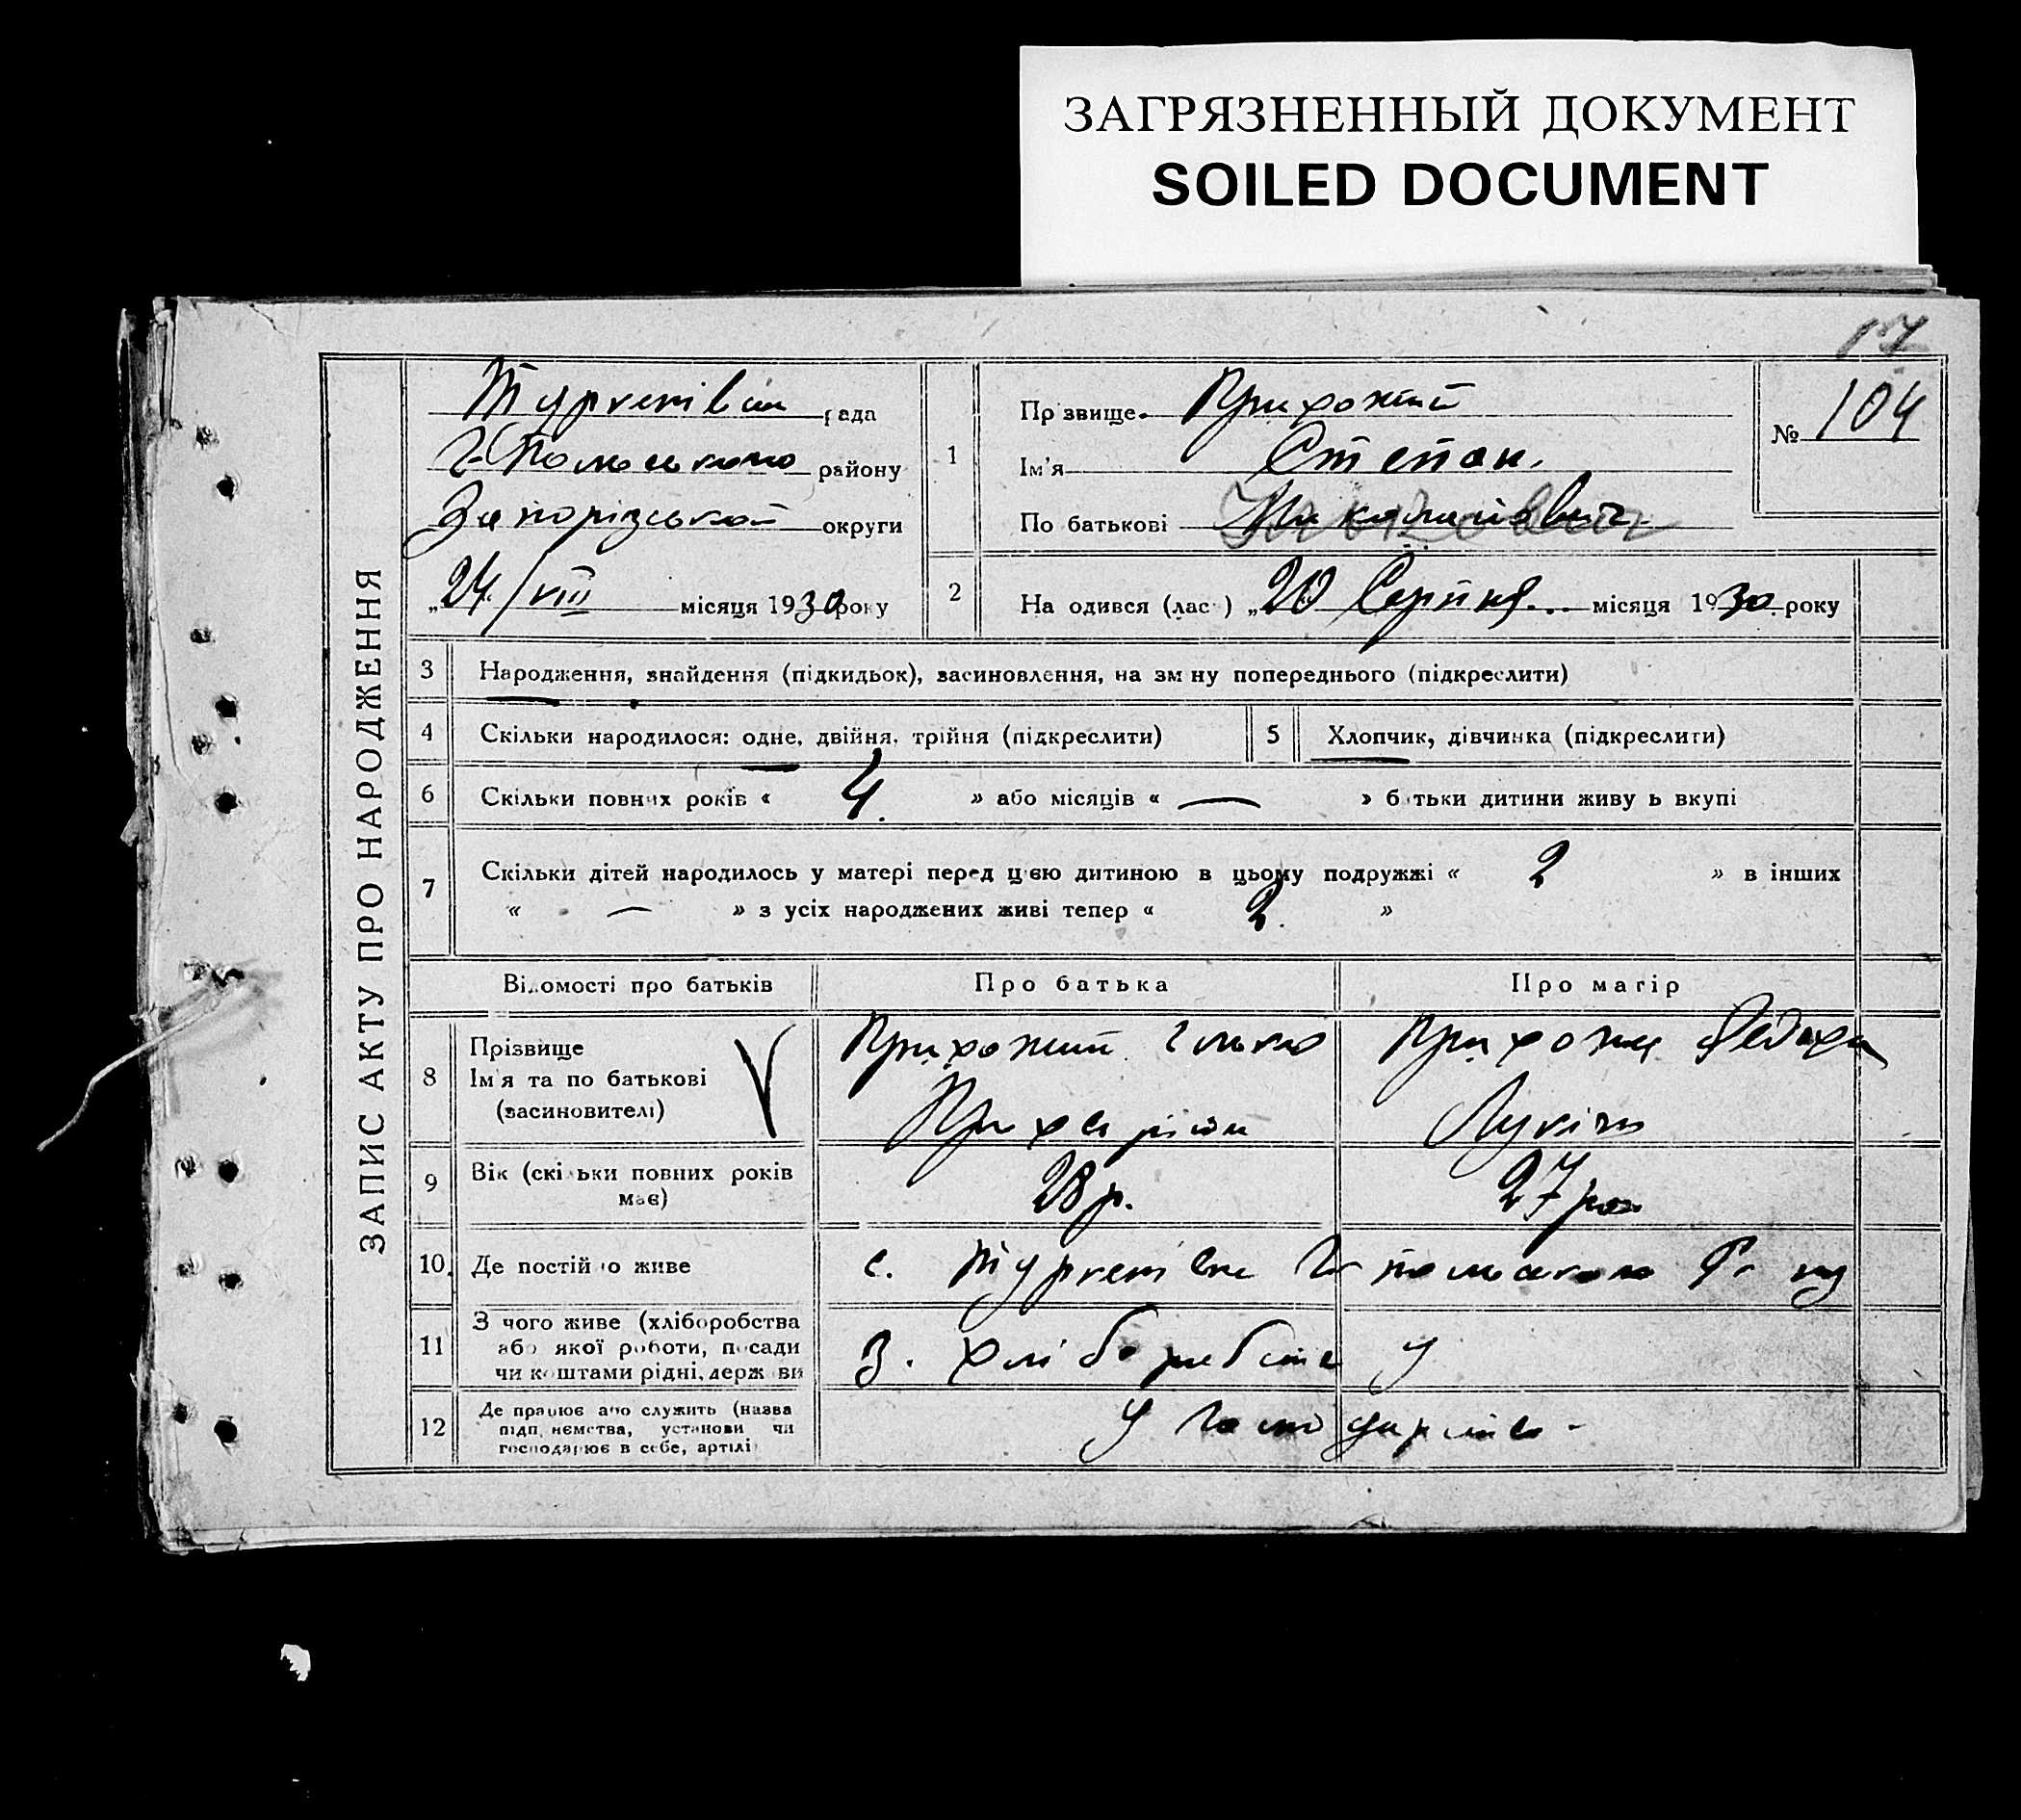 ЗАГРЯЗНЕННЫЙ ДОКУМЕНТ
SOILED DOCUMENT
17
ЗАПИС АКТУ ПРО НАРОДЖЕННЯ
рада
району
Запорізької округи
„24/VIII місяця 1930 року
1
Прізвище Прихожий
Ім'я Степан.
По батькові
№ 104
2
Народився (лась) „20 Серпня місяця 1930 року
3 Народження, знайдення (підкидьок), засиновлення, на зміну попереднього (підкреслити)
4 Скільки народилося: одне, двійня, трійня (підкреслити)
5 Хлопчик, дівчинка (підкреслити)
6 Скільки повних років « 4. » або місяців « — » батьки дитини живуть вкупі
7 Скільки дітей народилось у матері перед цією дитиною в цьому подружжі « 2 » в інших
« — » з усіх народжених живі тепер « 2. »
Відомості про батьків
Про батька
Про матір
8 Прізвище
Ім'я та по батькові
(засиновителі)
Прихожий
Прихожа
9 Вік (скільки повних років
має)
28 р.
27 рок
10. Де постійно живе
с.
11 З чого живе (хліборобства
або якої роботи, посади
чи коштами рідні, держави
З. хліборобства
12 Де працює або служить (назва
підприємства, установи чи
господарює в себе, артілі)
У